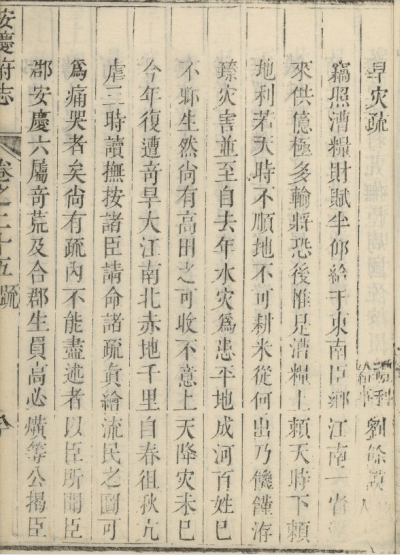 旱災疏
劉餘謨
竊照漕糧財賦半仰給于東南臣鄉江南一省
來供億極多輸將恐後惟是漕糧上賴天時下賴
地利若天時不順地不可耕米從何出乃饑饉洊
臻灾害並至自去年水灾爲患平地成河百姓已
不聊生然尚有高田之可收不意上天降灾未已
今年復遭奇旱大江南北赤地千里自春徂秋亢
虐三時讀撫按諸臣請命諸疏眞繪流民之圖可
爲痛哭者矣尚有疏內不能盡述者以臣所聞臣
郡安慶六屬奇荒及合郡生員高必爌等公揭臣
安慶府志
卷之二十五 疏